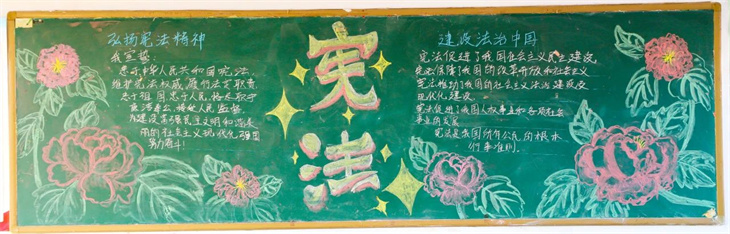 弘扬宪法精神
我宣誓:
忠于中华人民共和国宪法,
维护宪法权威,履行法定职责,
忠于祖国,忠于人民,恪尽职守
廉洁奉公,接受人民监督
为建设富强民主文明和谐美
丽的社会主义现代化强国
努力奋斗!
宪法
建设法治中国
宪法促进了我国社会主义民主建设
宪法保障了我国的改革开放和社会主义
宪法推动了我国的社会主义法治建设
现代化建设。
宪法促进了我国人权事业和各项社会
事业的发展
宪法是我国所有公民的根本
行事准则。